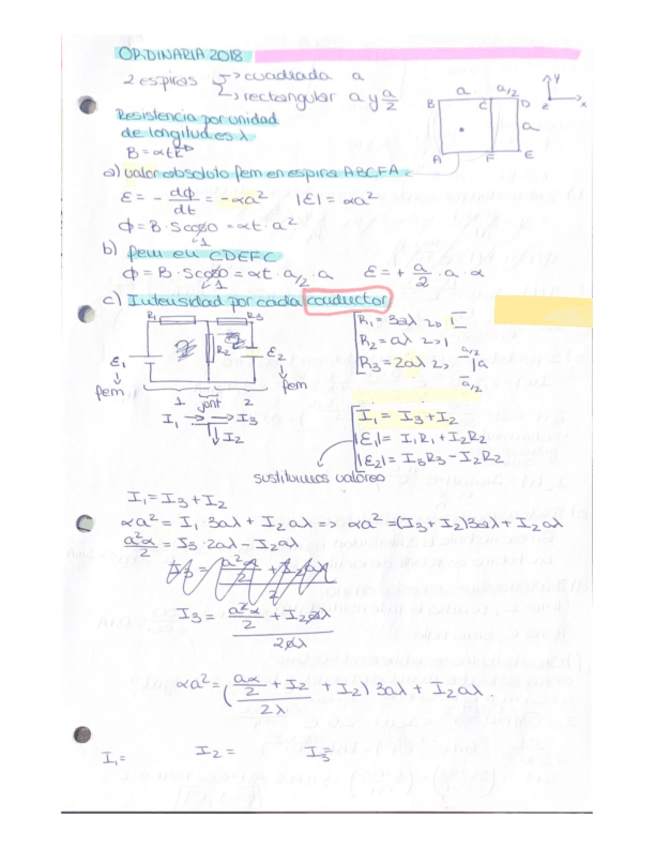 ORDINARIA 2018
2 espiras → cuadrada a
→ rectangular a y a/2
Resistencia por unidad
de longitud es λ
B = αt
B a C a/2 D
a
A F E
y
z x
a) valor absoluto fem en espira ABCFA
ε = - dϕ/dt = -αa² |ε| = αa²
ϕ = B · S cos0 = αt · a²
1
b) fem en CDEFC
ϕ = B · S cos0 = αt · a/2 · a ε = + a/2 · a · α
1
c) Intensidad por cada conductor
R1 R3
R2
ε1 ε2
fem fem
1 2
I1 → → I3
I2
R1 = 3aλ
R2 = aλ
R3 = 2aλ
a/2
a
a/2
I1 = I3 + I2
|ε1| = I1R1 + I2R2
|ε2| = I3R3 - I2R2
sustituimos valores
I1 = I3 + I2
αa² = I1 3aλ + I2 aλ => αa² = (I3 + I2)3aλ + I2 aλ
a²α/2 = I3 · 2aλ - I2 aλ
I3 = (a²α/2 + I2 aλ) / 2aλ
αa² = ((aα/2 + I2)/2λ + I2) 3aλ + I2 aλ.
I1 = I2 = I3 =